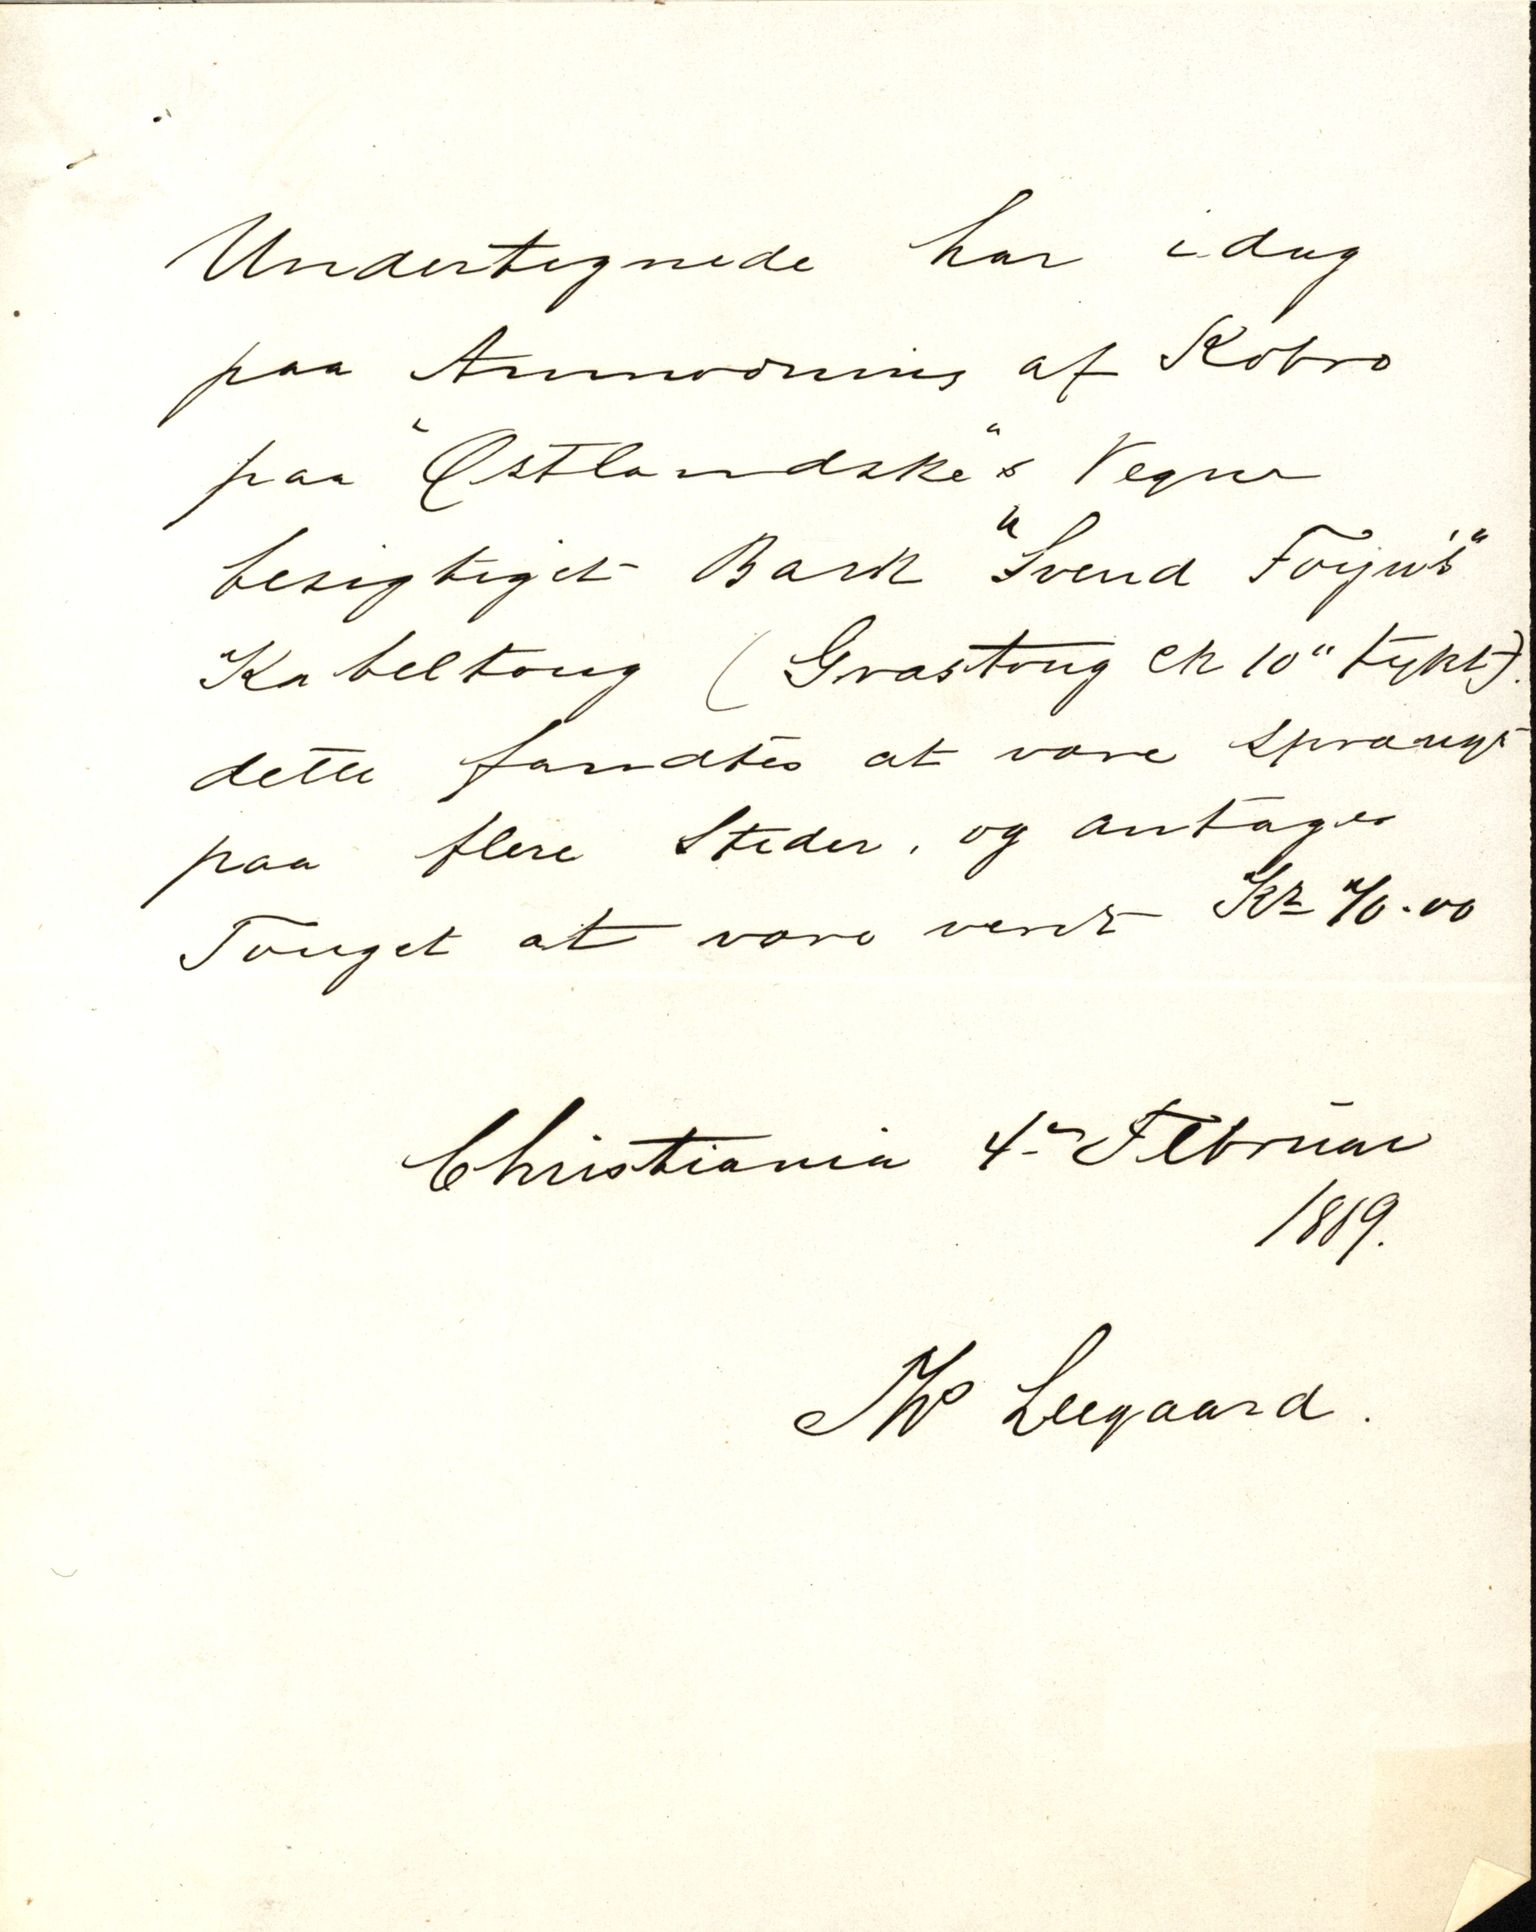 Undertegnede har idag
paa Anmodning af Kobro
paa "Østlandske"s Vegne
besigtiget Bark "Svend Foyn's"
Kabeltoug (Grastoug ca 10" tykt).
dette fandtes at være sprængt
paa flere Steder, og antages
Touget at være verdt Kr 70.00
Christiania 4de Februar
1889.
Ths Leegaard.